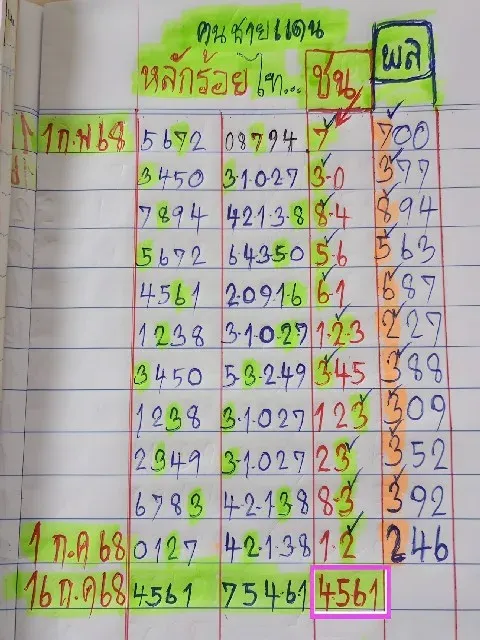 คนชายแดน
หลักร้อย ไท... ชน ผล
1 ก.พ 68 5672 08794 7 700
3450 3.1.0.27 3-0 377
7894 421.3.8 8-4 894
5672 64350 5-6 563
4561 2.091.6 6-1 687
1238 3.1.0.27 1-2-3 227
3450 5.3.249 345 388
1238 3.1.027 123 309
2349 3.1.027 23 352
6783 42.138 8-3 392
1 ก.ค 68 0127 42.1.38 1-2 246
16 ก.ค 68 4561 754.61 4561